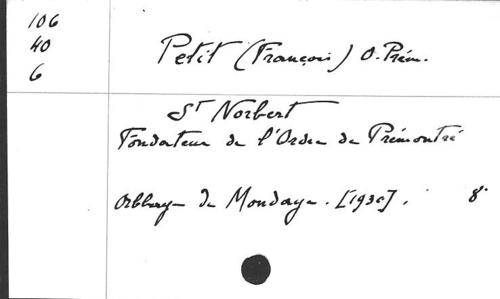 106
40
6
Petit (François) O. Prém.
St Norbert
Fondateur de l'Ordre de Prémontré
Abbaye de Mondaye. [1930]. 8°